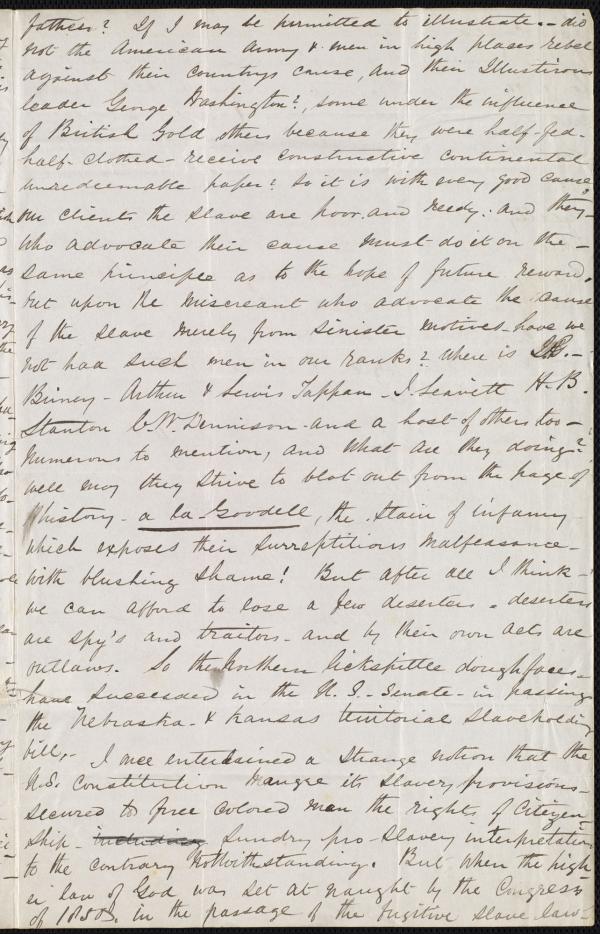 fathers? If I may be permitted to illustrate. - did
not the American army & men in high places rebel
against their countrys cause, and their Illustirous
leader George Washington?, some under the influence
of British Gold others because they were half-fed-
half-clothed - receive constructive continental
unredeemable paper? So it is with every good cause
our clients the slave are poor, and needy: and they -
who advocate their cause must do it on the -
same principle as to the hope of future reward.
But upon the miscreant who advocate the cause
of the slave merely from sinister motives - have we
not had such men in our ranks? Where is J.G. -
Birney - Arthur & Lewis Tappan - J. Leavitt H. B.
Stanton C. W. Dennison - and a host of others too -
numerous to mention, and what are they doing?
well may they strive to blot out from the page of
history - a la Goodell, the stain of infamy
which exposes their surreptitious malfeasance -
with blushing shame! But after all I think -
we can afford to lose a few deserters - deserters
are spy's and traitors - and by their own acts are
outlaws. So the Northern lickspittle doughfaces -
have succeeded in the U. S. - Senate - in passing
the Nebraska - & Kansas teritorial slaveholding
bill, - I once entertained a strange notion that the
U.S. Constitution maugre its slavery provisions -
secured to free colored men the rights of Citizen-
ship - sundry pro-slavery interpretation
to the contrary notwithstanding. But when the high
er law of God was set at naught by the Congress
of 1850. in the passage of the fugitive slave law -